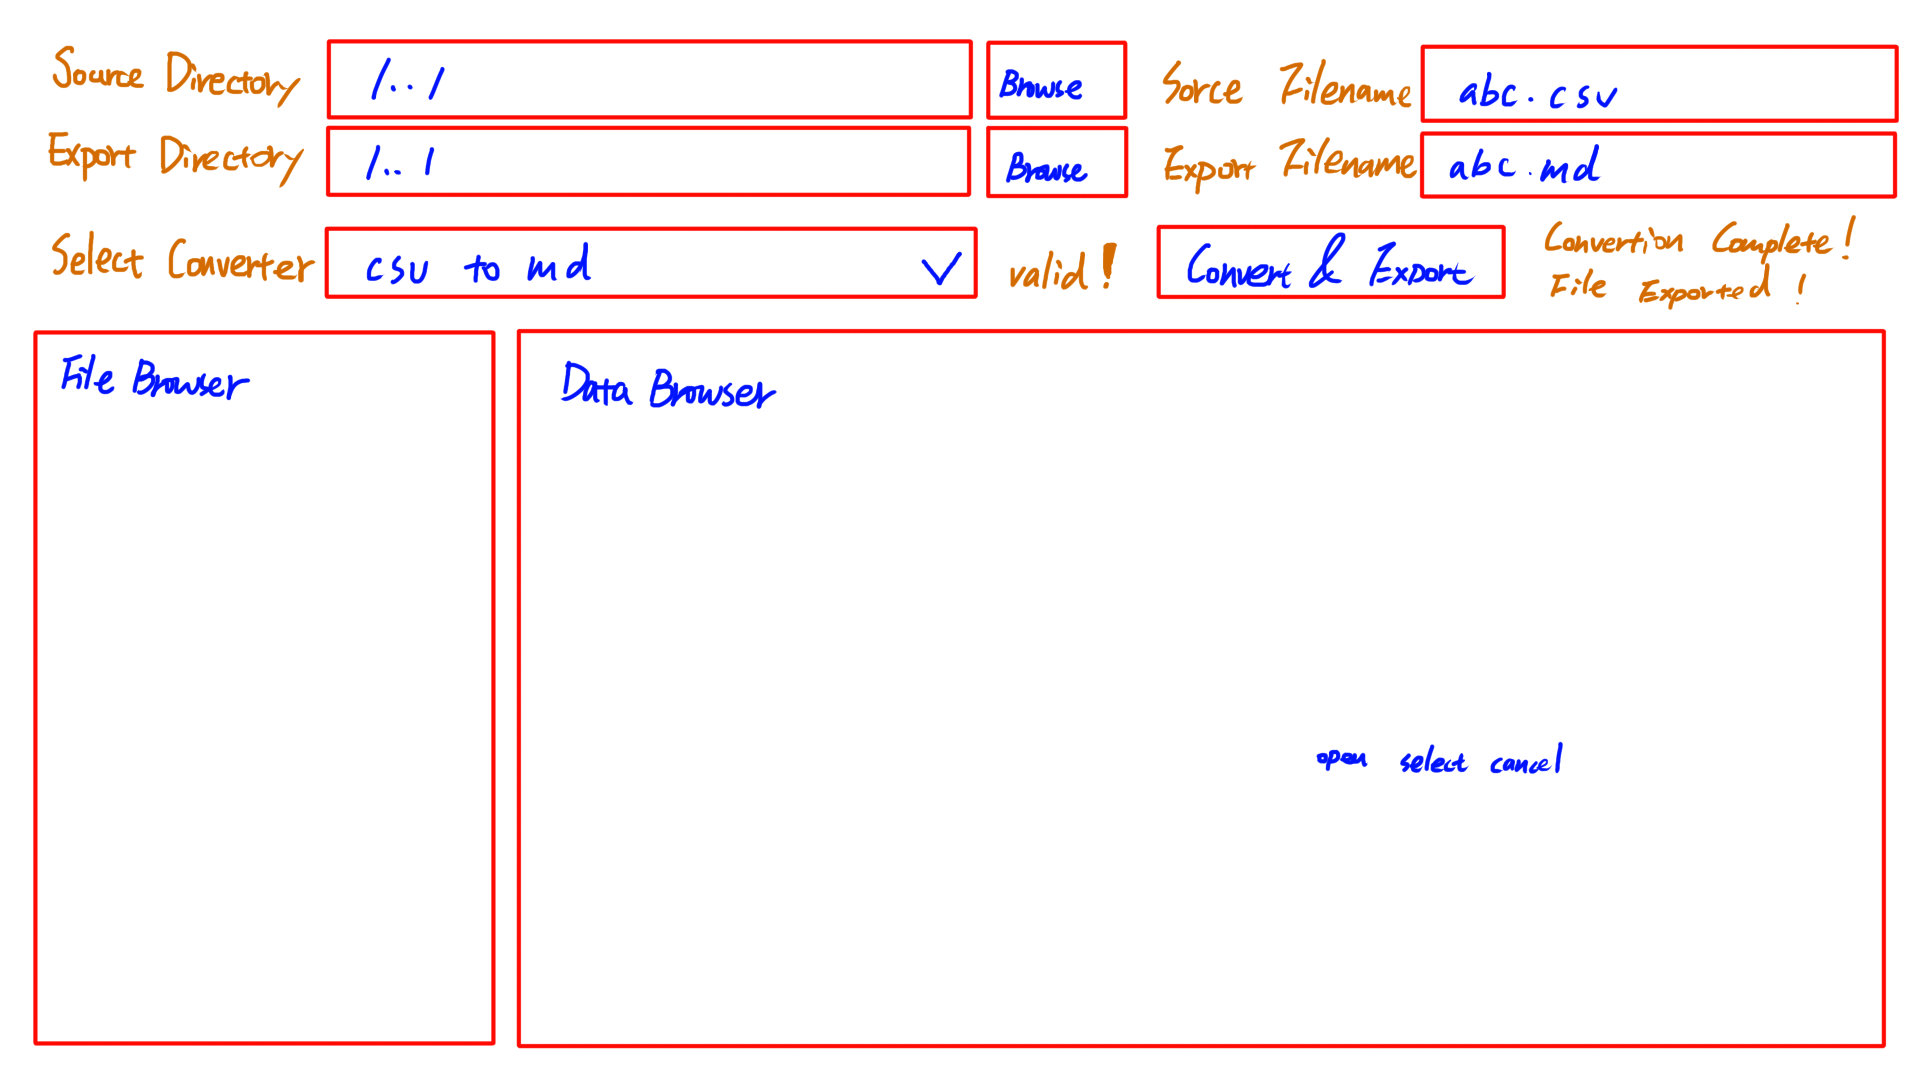 Source Directory /../ Browse Sorce Filename abc.csv
Export Directory /../ Browse Export Filename abc.md
Select Converter csv to md valid! Convert & Export Convertion Complete!
File Exported!
File Browser Data Browser
open select cancel